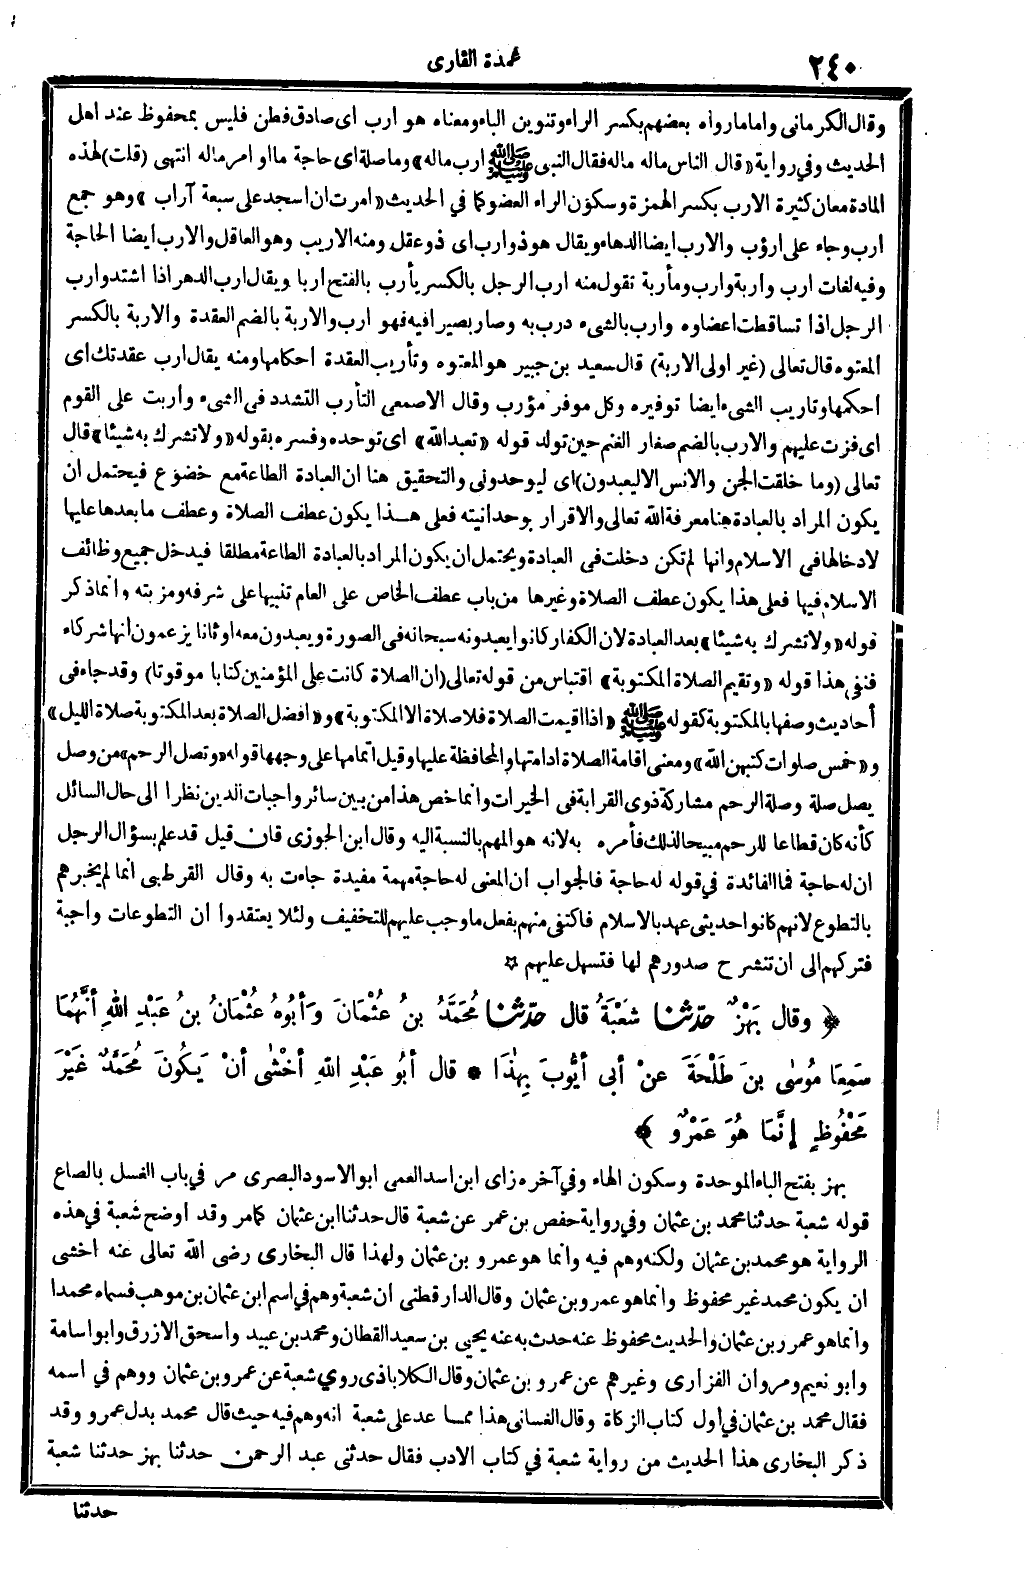 ٢٤٠
عمدة القارى
وقال الكرمانى واما مارواه بعضهم بكسر الراء وتنوين الباء ومعناه هو ارب اى صادق فطن فليس بمحفوظ عند اهل
الحديث وفي رواية «قال الناس ماله ماله فقال النبى ﷺ ارب ماله» وما صلة اى حاجة ما او امر ماله انتهى (قلت) لهذه
المادة معان كثيرة الارب بكسر الهمزة وسكون الراء العضو كما في الحديث «امرت ان اسجد على سبعة آراب» وهو جمع
ارب وجاء على ارؤب والارب ايضا الدهاء ويقال هو ذو ارب اى ذو عقل ومنه الاريب وهو العاقل والارب ايضا الحاجة
وفيه لغات ارب واربة وارب ومأربة تقول منه ارب الرجل بالكسر يأرب بالفتح اربا ويقال ارب الدهر اذا اشتد وارب
الرجل اذا تساقطت اعضاوه وارب بالشىء درب به وصار بصيرا فيه فهو ارب والاربة بالضم العقدة والاربة بالكسر
المعتوه قال تعالى (غير اولى الاربة) قال سعيد بن جبير هو المعتوه وتأريب العقدة احكامها ومنه يقال ارب عقدتك اى
احكمها وتاريب الشىء ايضا توفيره وكل موفر مؤرب وقال الاصمعى التأرب التشدد فى الشىء واربت على القوم
اى فزت عليهم والارب بالضم صغار الغنم حين تولد قوله «تعبد الله» اى توحده وفسره بقوله «ولا تشرك به شيئا» قال
تعالى (وما خلقت الجن والانس الا ليعبدون) اى ليوحدونى والتحقيق هنا ان العبادة الطاعة مع خضوع فيحتمل أن
يكون المراد بالعبادة هنا معرفة الله تعالى والاقرار بوحدانيته فعلى هذا يكون عطف الصلاة وعطف ما بعدها عليها
لادخالها فى الاسلام وانها لم تكن دخلت فى العبادة ويحتمل ان يكون المراد بالعبادة الطاعة مطلقا فيدخل جميع وظائف
الاسلام فيها فعلى هذا يكون عطف الصلاة وغيرها من باب عطف الخاص على العام تنبيها على شرفه ومزيته وانما ذكر
قوله «ولا تشرك به شيئا» بعد العبادة لان الكفار كانوا يعبدونه سبحانه فى الصورة ويعبدون معه اوثانا يزعمون انها شركاء
فنفى هذا قوله «وتقيم الصلاة المكتوبة» اقتباس من قوله تعالى (ان الصلاة كانت على المؤمنين كتابا موقوتا) وقد جاء فى
أحاديث وصفها بالمكتوبة كقوله ﷺ «اذا اقيمت الصلاة فلا صلاة الا المكتوبة» و«افضل الصلاة بعد المكتوبة صلاة الليل»
و«خمس صلوات كتبهن الله» ومعنى اقامة الصلاة ادامتها والمحافظة عليها وقيل اتمامها على وجهها قوله «وتصل الرحم» من وصل
يصل صلة وصلة الرحم مشاركة ذوى القرابة فى الخيرات وانما خص هذا من بين سائر واجبات الدين نظرا الى حال السائل
كأنه كان قطاعا للرحم مبيحا لذلك فأمره به لانه هو المهم بالنسبة اليه وقال ابن الجوزى فان قيل قد علم بسؤال الرجل
ان له حاجة فما الفائدة في قوله له حاجة فالجواب أن المعنى له حاجة مهمة مفيدة جاءت به وقال القرطبى انما لم يخبرهم
بالتطوع لانهم كانوا حديثى عهد بالاسلام فاكتفى منهم بفعل ما وجب عليهم للتخفيف ولئلا يعتقدوا ان التطوعات واجبة
فتركهم الى ان تنشرح صدورهم لها فتسهل عليهم ☆
﴿ وقال بَهْزٌ حدّثنا شعْبَةُ قال حدّثنا مُحَمَّدُ بنُ عُثْمَانَ وَأبُوهُ عُثْمَانُ بنُ عَبْدِ اللهِ أنَّهُمَا
سَمِعَا مُوسٰى بنَ طَلْحَةَ عنْ أبى أيُّوبَ بِهٰذَا * قال أبُو عَبْدِ اللهِ أخْشٰى أنْ يَكُونَ مُحَمَّدٌ غَيْرَ
مَحْفُوظٍ إنَّمَا هُوَ عَمْرٌو ﴾
بهز بفتح الباء الموحدة وسكون الهاء وفي آخره زاى ابن اسد العمى ابو الاسود البصرى مر في باب الغسل بالصاع
قوله شعبة حدثنا محمد بن عثمان وفي رواية حفص بن عمر عن شعبة قال حدثنا ابن عثمان كما مر وقد اوضح شعبة في هذه
الرواية هو محمد بن عثمان ولكنه وهم فيه وانما هو عمرو بن عثمان ولهذا قال البخارى رضى الله تعالى عنه اخشى
ان يكون محمد غير محفوظ وانما هو عمرو بن عثمان وقال الدارقطنى ان شعبة وهم في اسم ابن عثمان بن موهب فسماه محمدا
وانما هو عمرو بن عثمان والحديث محفوظ عنه حدث به عنه يحيى بن سعيد القطان ومحمد بن عبيد واسحق الازرق وابو اسامة
وابو نعيم ومروان الفزارى وغيرهم عن عمرو بن عثمان وقال الكلاباذى روي شعبة عن عمرو بن عثمان ووهم في اسمه
فقال محمد بن عثمان في أول كتاب الزكاة وقال الغسانى هذا مما عد على شعبة انه وهم فيه حيث قال محمد بدل عمرو وقد
ذكر البخارى هذا الحديث من رواية شعبة في كتاب الادب فقال حدثنى عبد الرحمن حدثنا بهز حدثنا شعبة
حدثنا